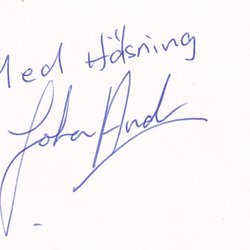 Med Hälsning
Johan And